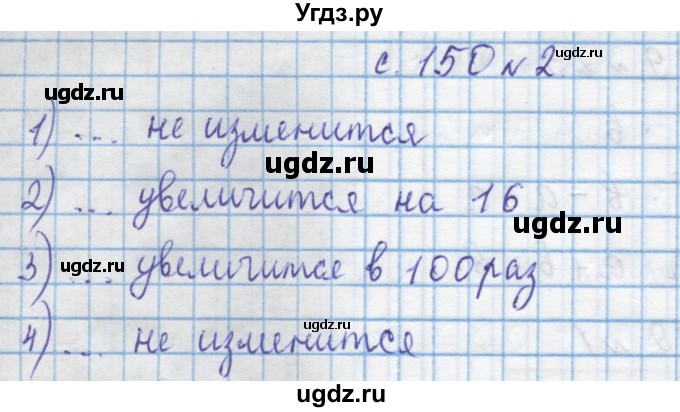 Угдз.ру
с. 150 № 2
ugdz.ru
ugdz.ru
ugdz.ru
1) ... не изменится
ugdz.ru
2) ... увеличится на 16
ugdz.ru
ugdz.ru
3) ... увеличится в 100 раз
ugdz.ru
ugdz.ru
4) ... не изменится
ugdz.ru